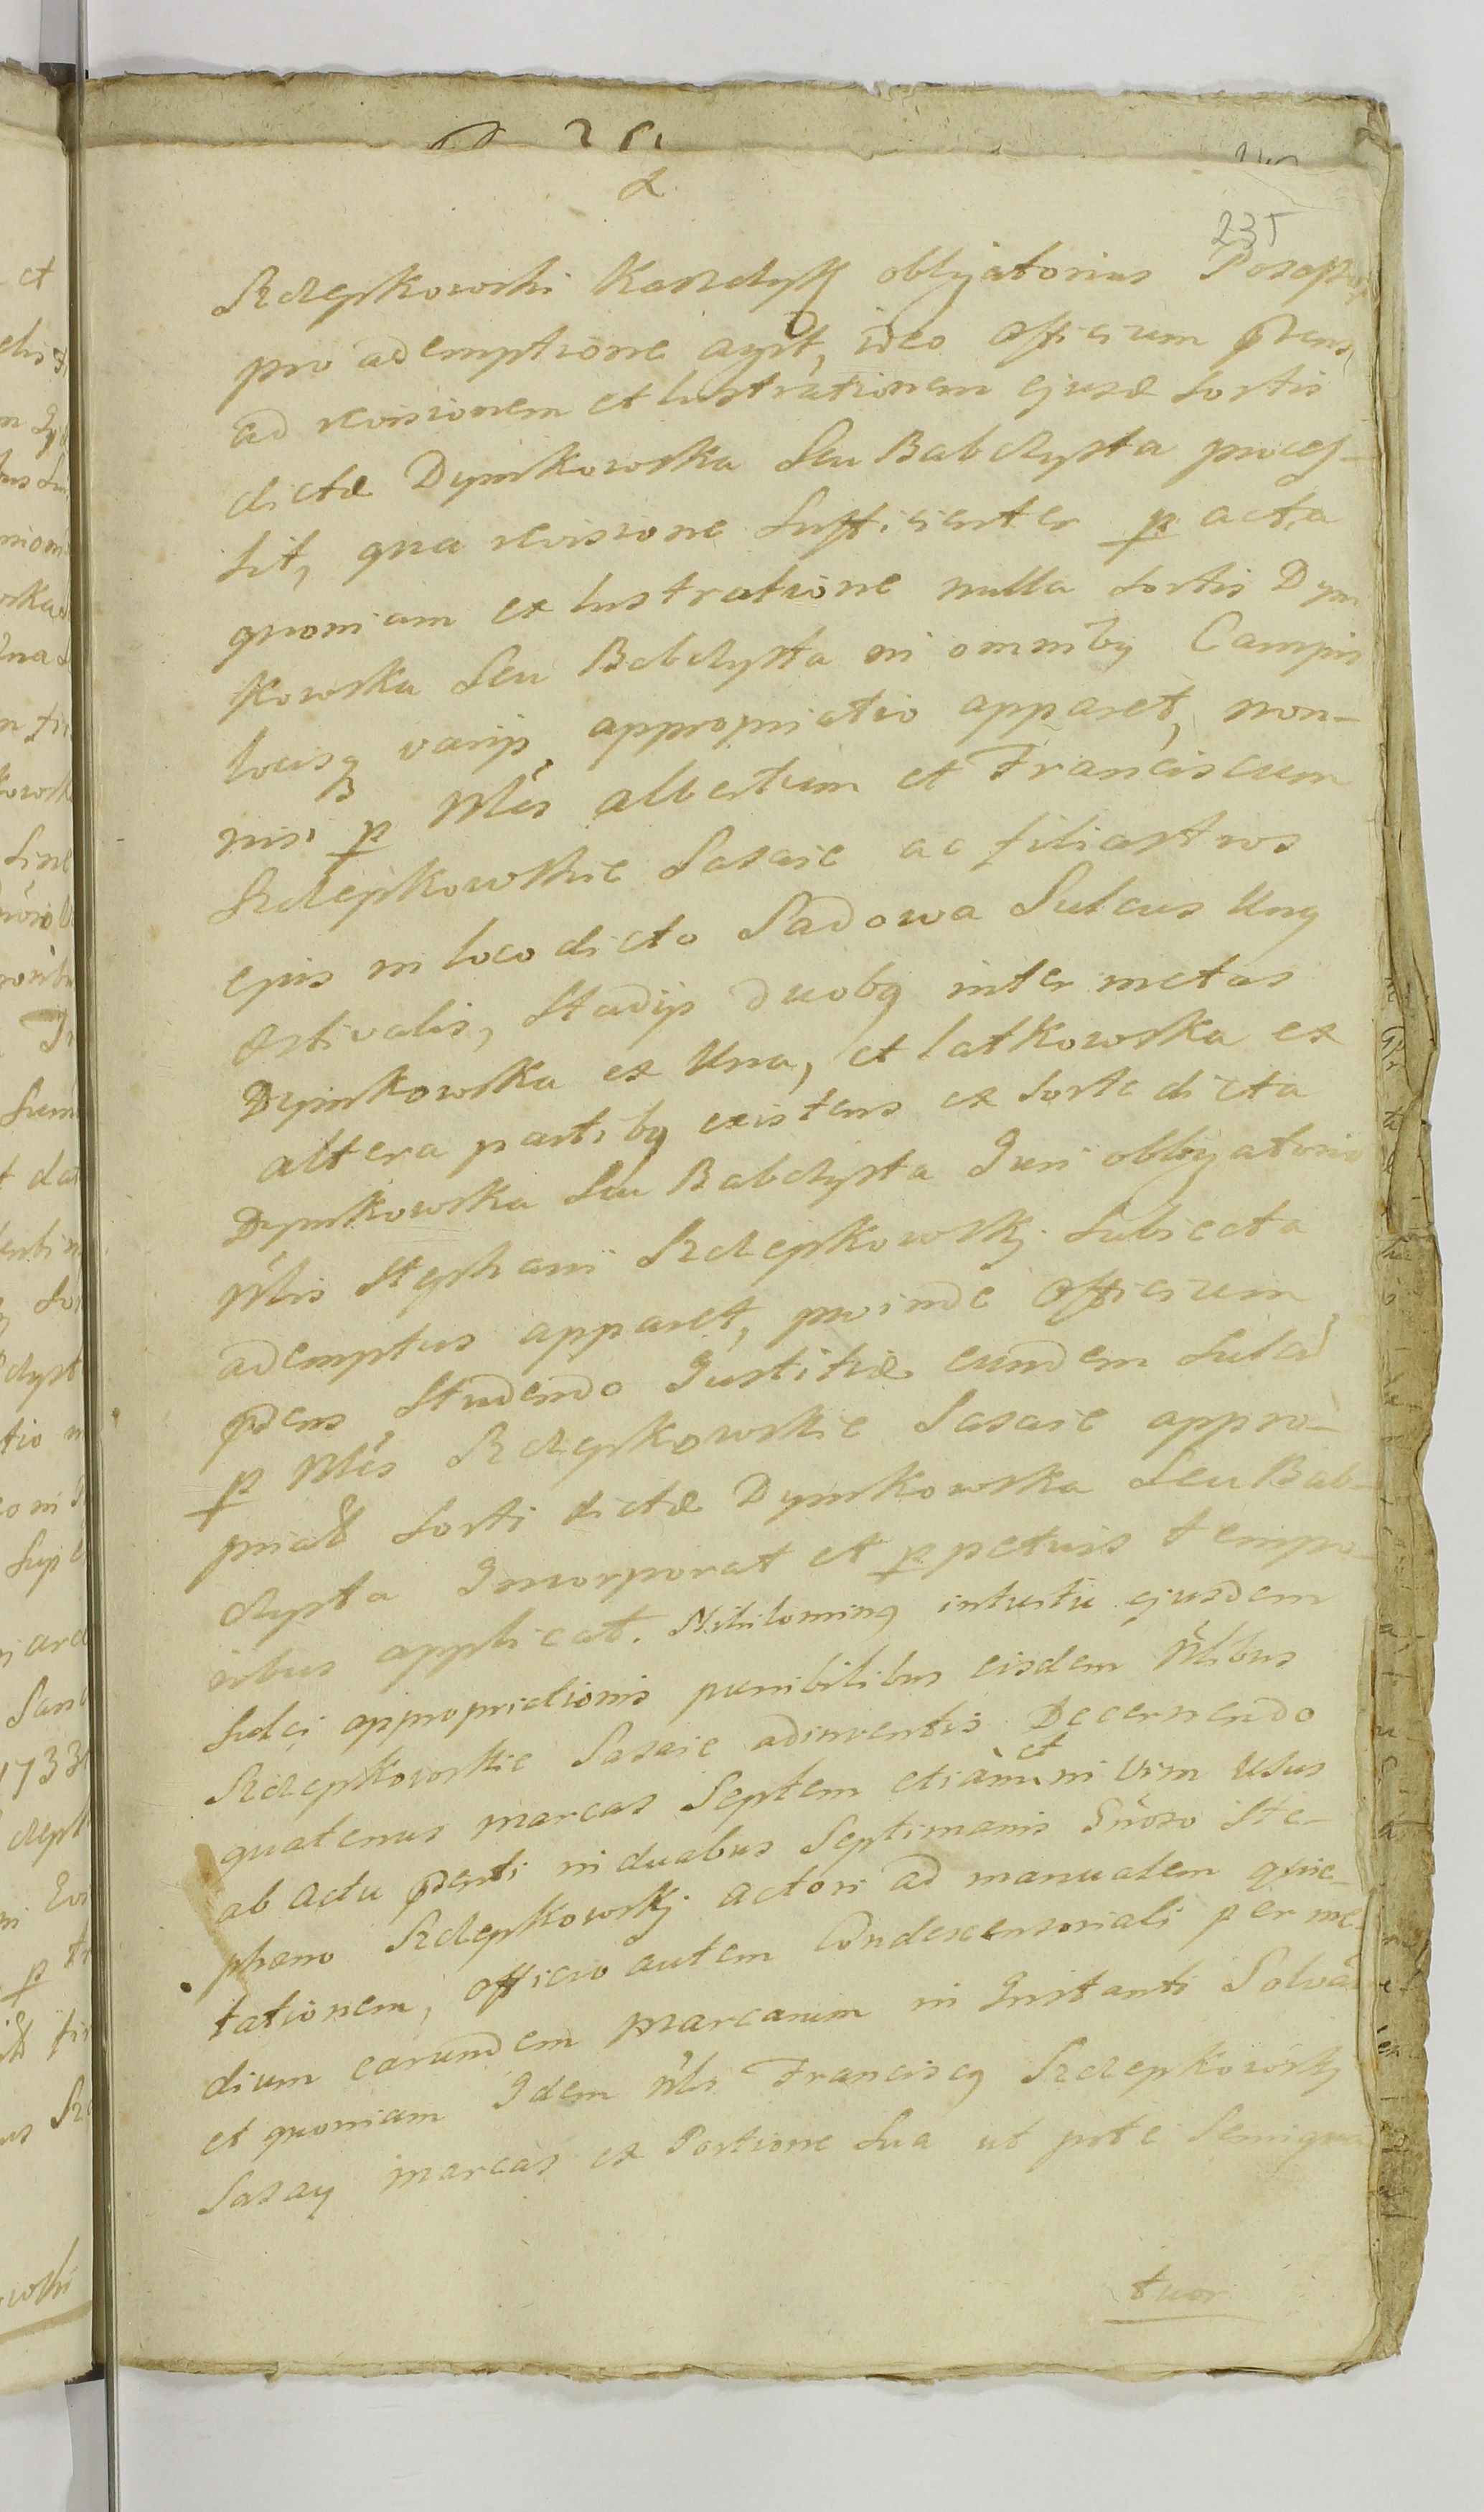 2
235
Szczepkowski Kaszczyk obligatorius Possessor
pro ademptione agit, ideo officium pñens
ad revisionem et lustrationem ejusd sortis
dictæ Dymkowska Seu Babczysta proces-
sit, qua revisione sufficienter p acta
quoniam ex lustratione nulla sortis Dym
kowska Seu Babczysta in omnibq Campis
locisq varijs appropriatio apparet, non-
nisi p Nles Albertum et Franciscum
Szczepkowskie Sasaie ac filiastros
ejus in loco dicto Sadowa Sulcus Unq
æstivalis, Stadijs duobq inter metas
Dymkowska ex Una, et latkowska ex
altera partibq existens ex sorte dicta
Dymkowska Seu Babczysta Juri obligatorio
Nlis Stephani Szczepkowskj Subiecta
ademptus apparet, proinde officium
pñens Studendo Justitiæ eundem Sulcũ
p Nles Szczepkowskie Sasaie appro-
priat Sorti dictæ Dymkowska Seu Bab-
czysta Incorporat et p petuis tempo-
ribus applicat. Nihilominq intuitu ejusdem
Sulci appropriationis punibilibus eisdem Nlibus
Szczepkowskie Sasaie adinventis Decernendo
et
quatenus marcas Septem etiam in vim usus
ab actu pñenti in duabus Septimanis Gñoso Ste-
phano Szczepkowskj Actori ad manualem quie-
tationem, officio autem Condescensoriali per me-
dium earundem marcarum in Instanti Solvãt
et quoniam Idem Nls Franciscq Szczepkowskj
Sasay marcas ex Portione Sua ut pote Semiqua
tuor